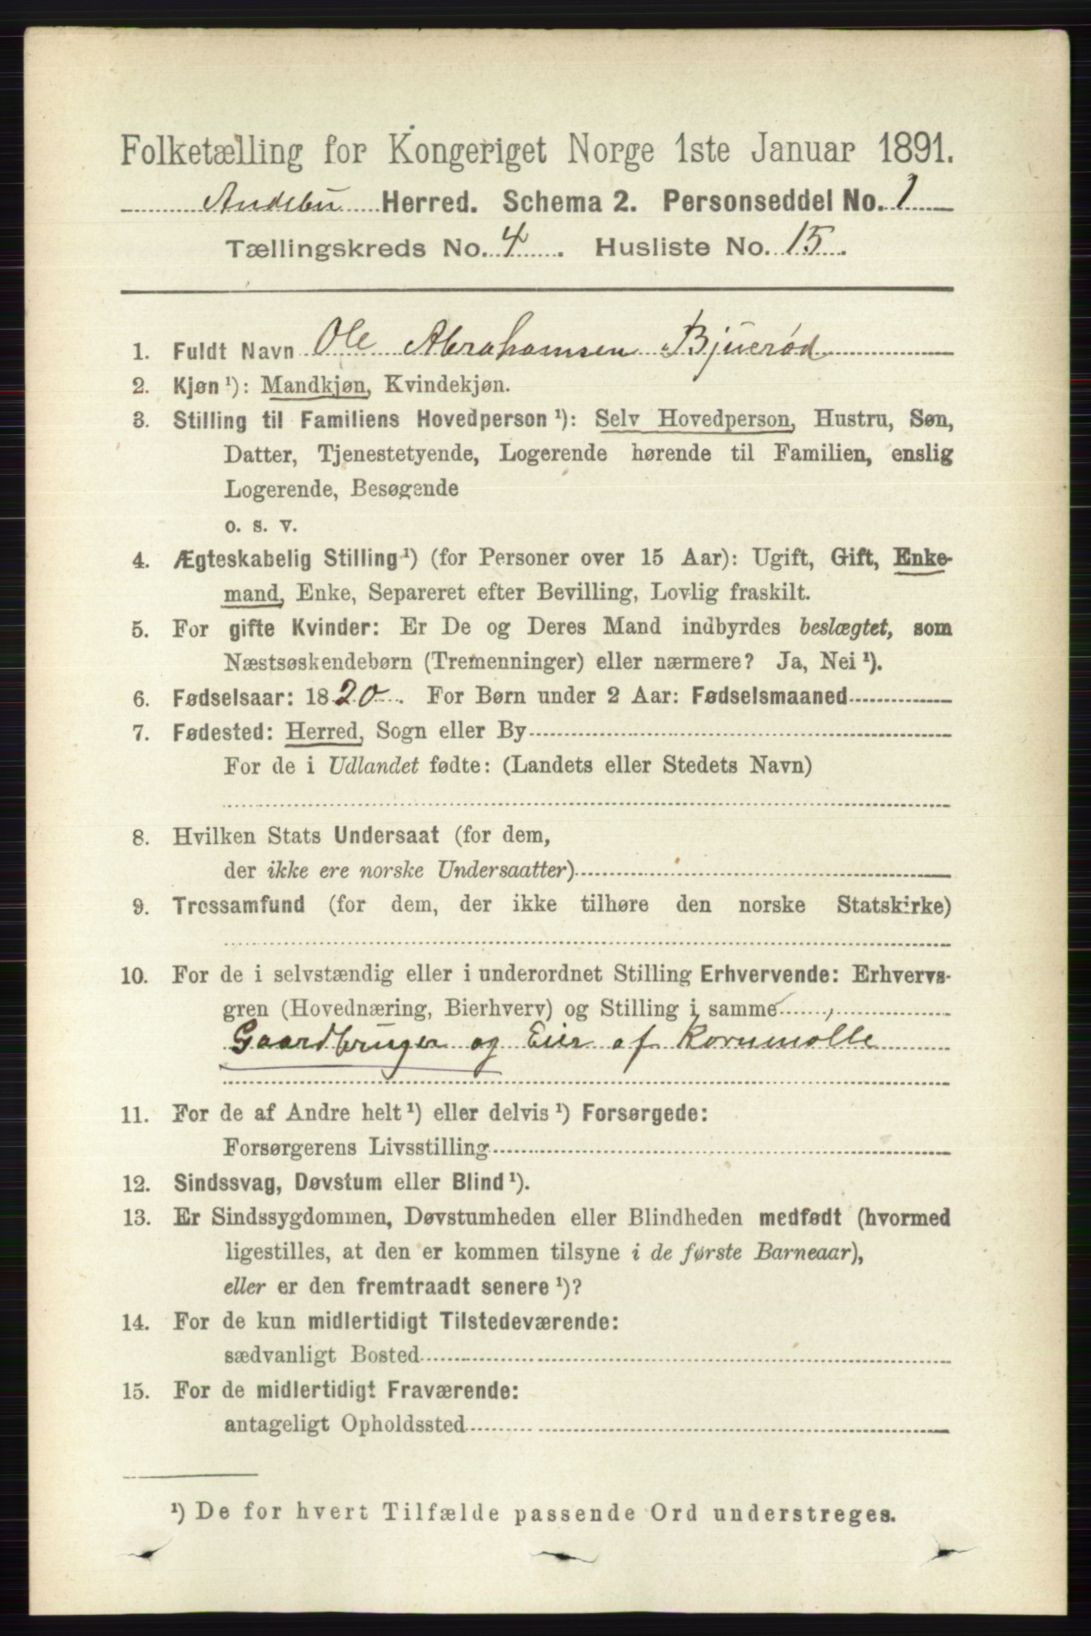 Folketælling for Kongeriget Norge 1ste Januar 1891.
Andebu Herred. Schema 2. Personseddel No. 1
Tællingskreds No. 4. Husliste No. 15.
1. Fuldt Navn Ole Abrahamsen Bjuerød
2. Kjøn ¹): Mandkjøn, Kvindekjøn.
3. Stilling til Familiens Hovedperson ¹): Selv Hovedperson, Hustru, Søn,
Datter, Tjenestetyende, Logerende hørende til Familien, enslig
Logerende, Besøgende
o. s. v.
4. Ægteskabelig Stilling ¹) (for Personer over 15 Aar): Ugift, Gift, Enke-
mand, Enke, Separeret efter Bevilling, Lovlig fraskilt.
5. For gifte Kvinder: Er De og Deres Mand indbyrdes beslægtet, som
Næstsøskendebørn (Tremenninger) eller nærmere? Ja, Nei ¹).
6. Fødselsaar: 1820. For Børn under 2 Aar: Fødselsmaaned
7. Fødested: Herred, Sogn eller By
For de i Udlandet fødte: (Landets eller Stedets Navn)
8. Hvilken Stats Undersaat (for dem,
der ikke ere norske Undersaatter)
9. Trossamfund (for dem, der ikke tilhøre den norske Statskirke)
10. For de i selvstændig eller i underordnet Stilling Erhvervende: Erhvervs-
gren (Hovednæring, Bierhverv) og Stilling i samme
Gaardbruger og Eier af Kornmølle
11. For de af Andre helt ¹) eller delvis ¹) Forsørgede:
Forsørgerens Livsstilling
12. Sindssvag, Døvstum eller Blind ¹).
13. Er Sindssygdommen, Døvstumheden eller Blindheden medfødt (hvormed
ligestilles, at den er kommen tilsyne i de første Barneaar),
eller er den fremtraadt senere ¹)?
14. For de kun midlertidigt Tilstedeværende:
sædvanligt Bosted
15. For de midlertidigt Fraværende:
antageligt Opholdssted
¹) De for hvert Tilfælde passende Ord understreges.